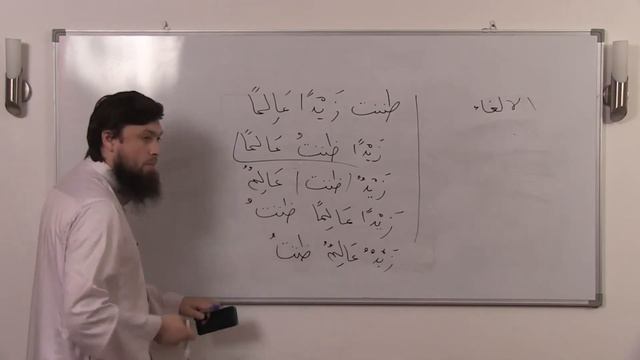 الالغاء
ظننت زَيْدًا عَالِمًا
زَيْدًا ظننتُ عَالِمًا
زَيْدٌ ظننت عَالِمٌ
زَيْدًا عَالِمًا ظننتُ
زَيْدٌ عَالِمٌ ظننتُ